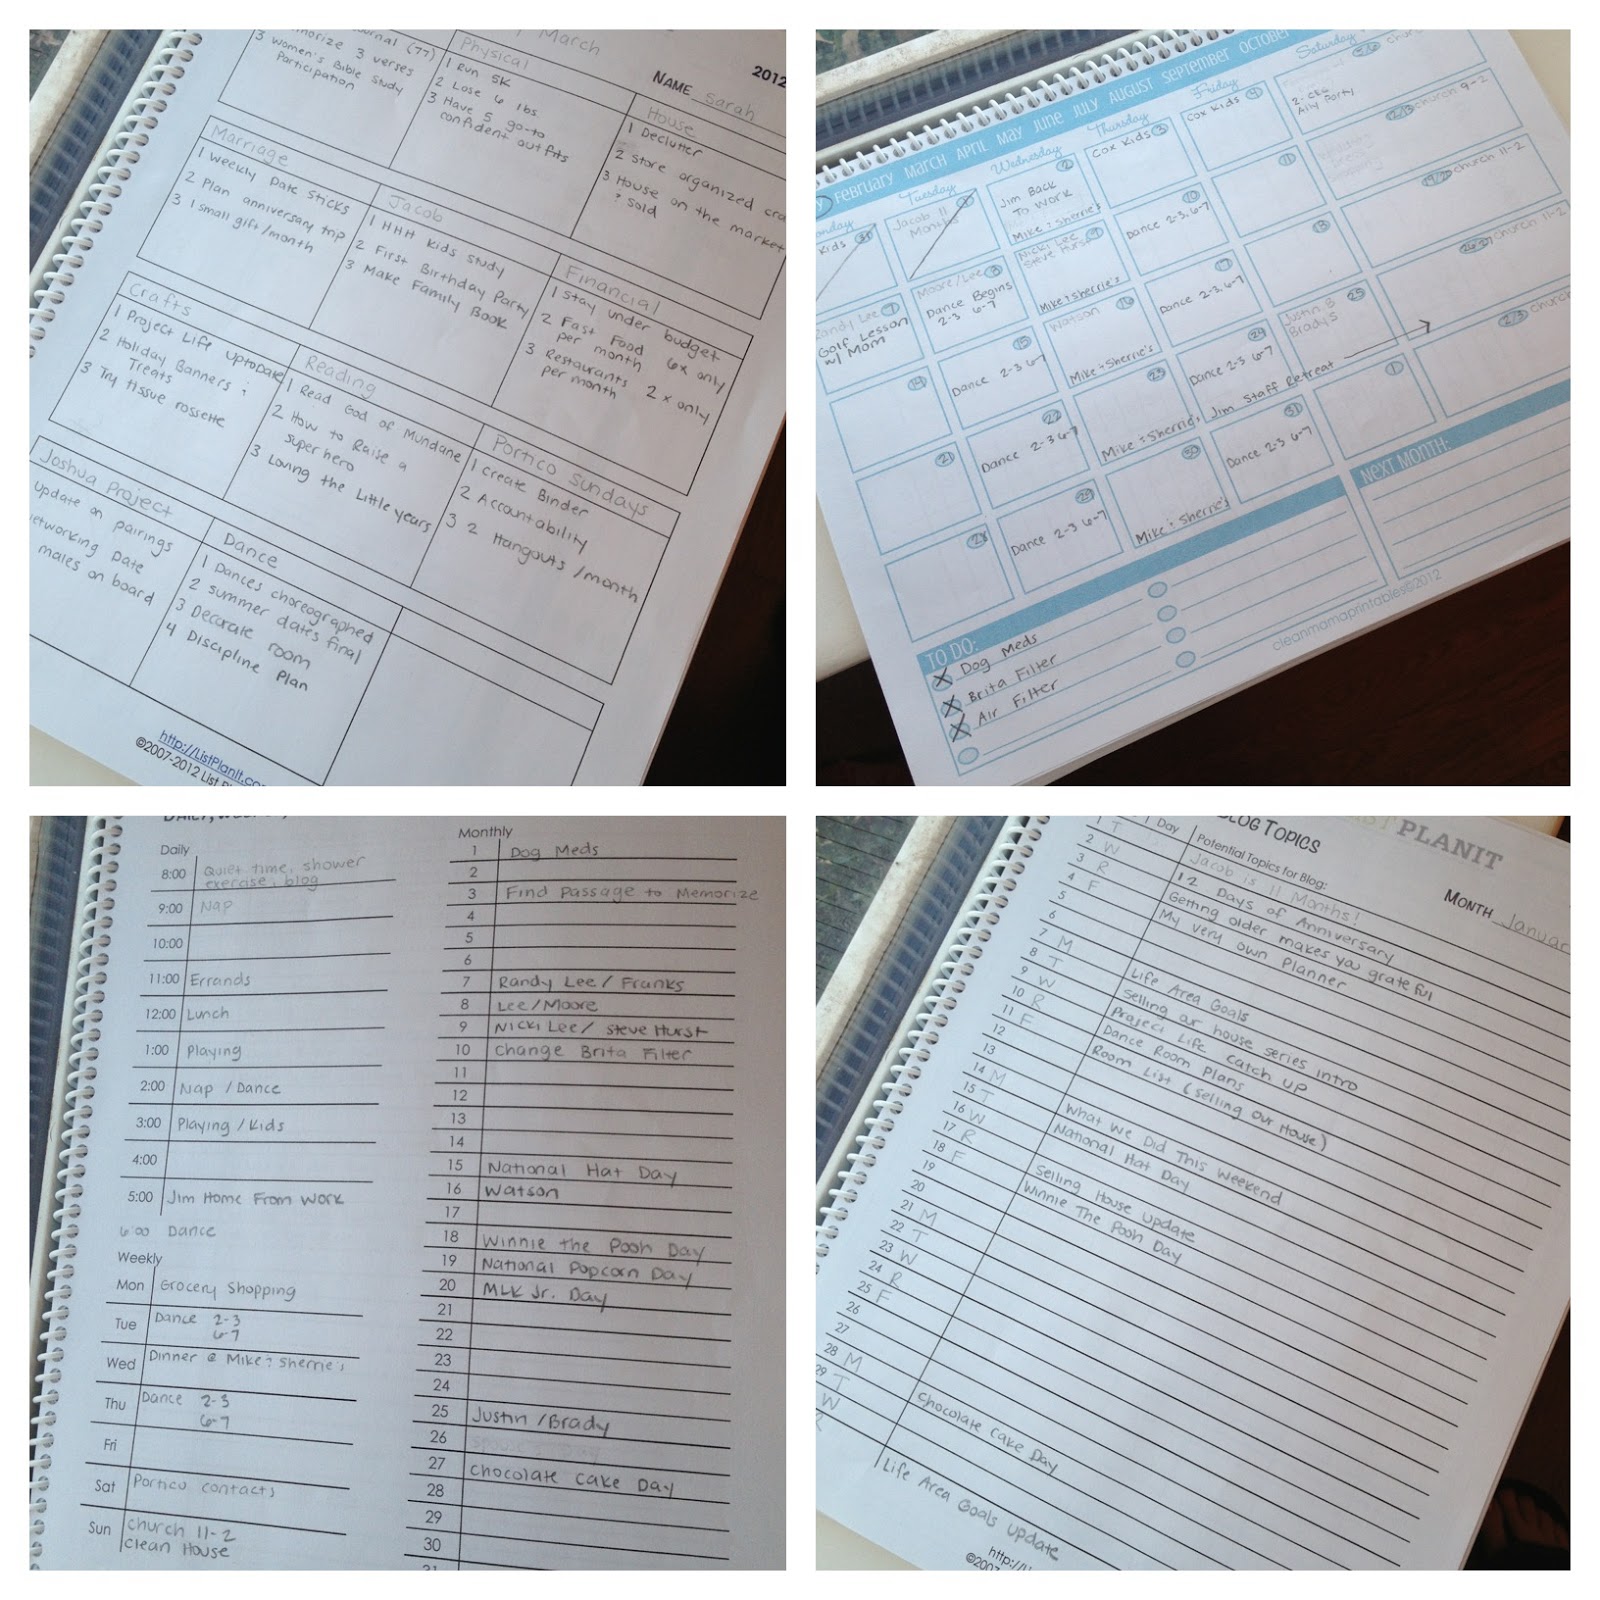 March
2012
NAME Sarah
3 verses
3 Women's Bible Study
Participation
Physical
1 Run 5K
2 Lose 6 lbs
3 Have 5 go-to
confident outfits
House
1 Declutter
2 Store organized
3 House on the market
& sold
Marriage
1 Weekly Date Sticks
2 Plan
anniversary trip
3 1 small gift/month
Jacob
1 HHH Kids study
2 First Birthday Party
3 Make Family Book
Financial
1 Stay under budget
2 Fast Food 6x only
per month
3 Restaurants 2x only
per month
Crafts
1 Project Life Uptodate
2 Holiday Banners &
Treats
3 Try tissue rossette
Reading
1 Read God of Mundane
2 How to Raise a
superhero
3 Loving the Little years
Portico Sundays
1 Create Binder
2 Accountability
3 2 Hangouts/month
Joshua Project
update on pairings
Date
males on board
Dance
1 Dances choreographed
2 summer dates final
3 Decorate room
4 Discipline Plan
http://ListPlanIt.co
©2007-2012 List
FEBRUARY MARCH APRIL MAY JUNE JULY AUGUST SEPTEMBER OCTOBER
Tuesday
Wednesday
Thursday
Friday
Saturday
Kids 31
Jacob 11
Months
1
2
Jim Back
To Work
Mike & Sherrie's
Cox Kids 3
4
Cox Kids
Ally Party
Randy Lee 7
Golf Lesson
w/ Mom
Moore/Lee 8
Dance Begins
2-3 6-7
Nicki Lee 9
Steve Hurst
Mike & Sherrie's
10
Dance 2-3, 6-7
11
church 9-2
14
15
Dance 2-3 6-7
16
Watson
Mike & Sherrie's
17
Dance 2-3, 6-7
18
church 11-2
21
22
Dance 2-3 6-7
23
Mike & Sherrie's
24
Dance 2-3 6-7
Jim Staff Retreat
25
Justin &
Brady's
church 11-2
28
29
Dance 2-3 6-7
30
Mike & Sherrie's
31
Dance 2-3 6-7
1
church
TO DO:
Dog Meds
Brita Filter
Air Filter
NEXT MONTH:
cleanmamaprintables©2012
Daily
8:00 Quiet time, shower
exercise, blog
9:00 Nap
10:00
11:00 Errands
12:00 Lunch
1:00 Playing
2:00 Nap /Dance
3:00 Playing/Kids
4:00
5:00 Jim Home From Work
6:00 Dance
Weekly
Mon Grocery Shopping
Tue Dance 2-3
6-7
Wed Dinner @ Mike & Sherrie's
Thu Dance 2-3
6-7
Fri
Sat Portico contacts
Sun church 11-2
clean House
Monthly
1 Dog Meds
2
3 Find Passage to Memorize
4
5
6
7 Randy Lee / Franks
8 Lee/Moore
9 Nicki Lee/ Steve Hurst
10 Change Brita Filter
11
12
13
14
15 National Hat Day
16 Watson
17
18 Winnie the Pooh Day
19 National Popcorn Day
20 MLK Jr. Day
21
22
23
24
25 Justin /Brady
26
27 Chocolate Cake Day
28
29
30
31
PLANIT
BLOG TOPICS
MONTH Januar
Day Potential Topics for Blog:
1 T Jacob is 11 Months!
2 W 12 Days of Anniversary
3 R Getting older makes you grateful
4 F My very own Planner
5
6
7 M Life Area Goals
8 T Selling our house series intro
9 W Project Life catch up
10 R Dance Room Plans
11 F Room List (Selling our House)
12
13
14 M What We Did This Weekend
15 T National Hat Day
16 W
17 R Selling House Update
18 F Winnie The Pooh Day
19
20
21 M
22 T
23 W
24 R
25 F
26
27
28 M Chocolate Cake Day
29 T
W
R Life Area Goals update
©2007